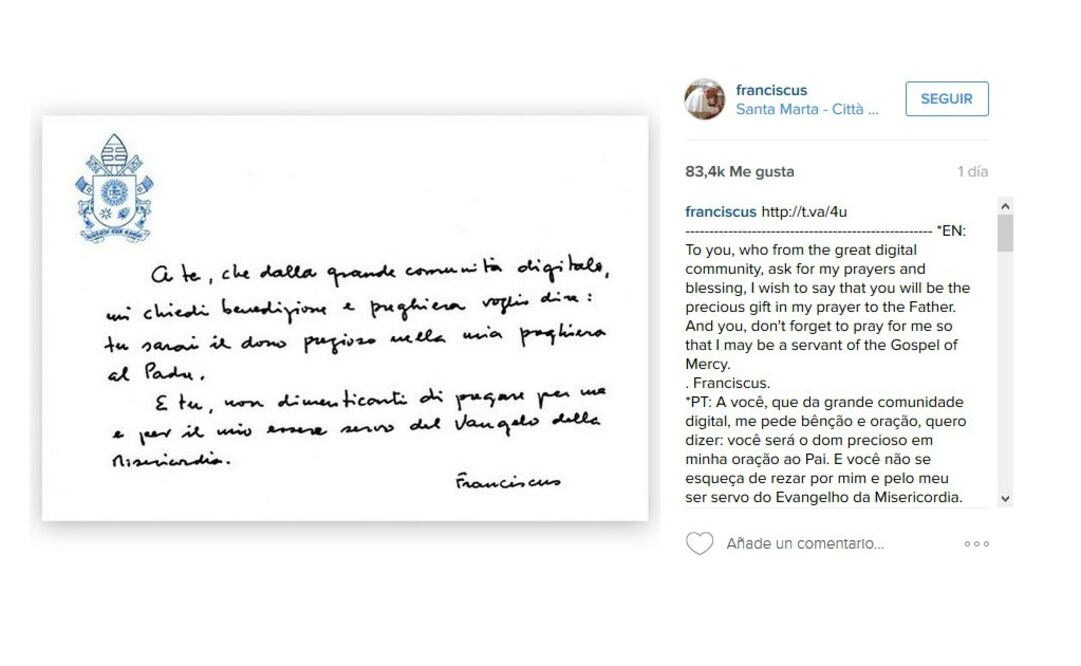 A te, che dalla grande comunità digitale,
mi chiedi benedizione e preghiera voglio dire:
tu sarai il dono prezioso nella mia preghiera
al Padre.
E tu, non dimenticarti di pregare per me
e per il mio essere servo del Vangelo della
Misericordia.
Franciscus
franciscus
Santa Marta - Città ...
SEGUIR
83,4k Me gusta
1 día
franciscus http://t.va/4u
---------------------------------------------------- *EN:
To you, who from the great digital
community, ask for my prayers and
blessing, I wish to say that you will be the
precious gift in my prayer to the Father.
And you, don't forget to pray for me so
that I may be a servant of the Gospel of
Mercy.
. Franciscus.
*PT: A você, que da grande comunidade
digital, me pede bênção e oração, quero
dizer: você será o dom precioso em
minha oração ao Pai. E você não se
esqueça de rezar por mim e pelo meu
ser servo do Evangelho da Misericordia.
Añade un comentario...